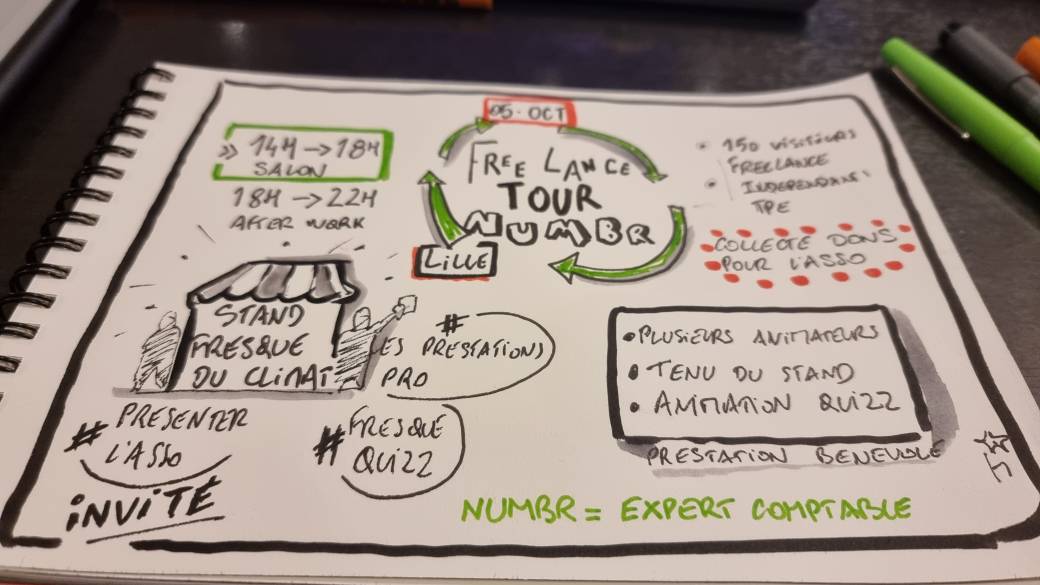 05·OCT
FREE LANCE
TOUR
NUMBR
LILLE
» 14H → 18H
SALON
18H → 22H
AFTER WORK
• 150 VISITEURS
• FREELANCE
INDEPENDANT
TPE
COLLECTE DONS
POUR L'ASSO
STAND
FRESQUE
DU CLIMAT
#
LES PRESTATIONS
PRO
# PRESENTER
L'ASSO
# FRESQUE
QUIZZ
INVITÉ
• PLUSIEURS ANIMATEURS
• TENU DU STAND
• ANIMATION QUIZZ
PRESTATION BENEVOLE
NUMBR = EXPERT COMPTABLE